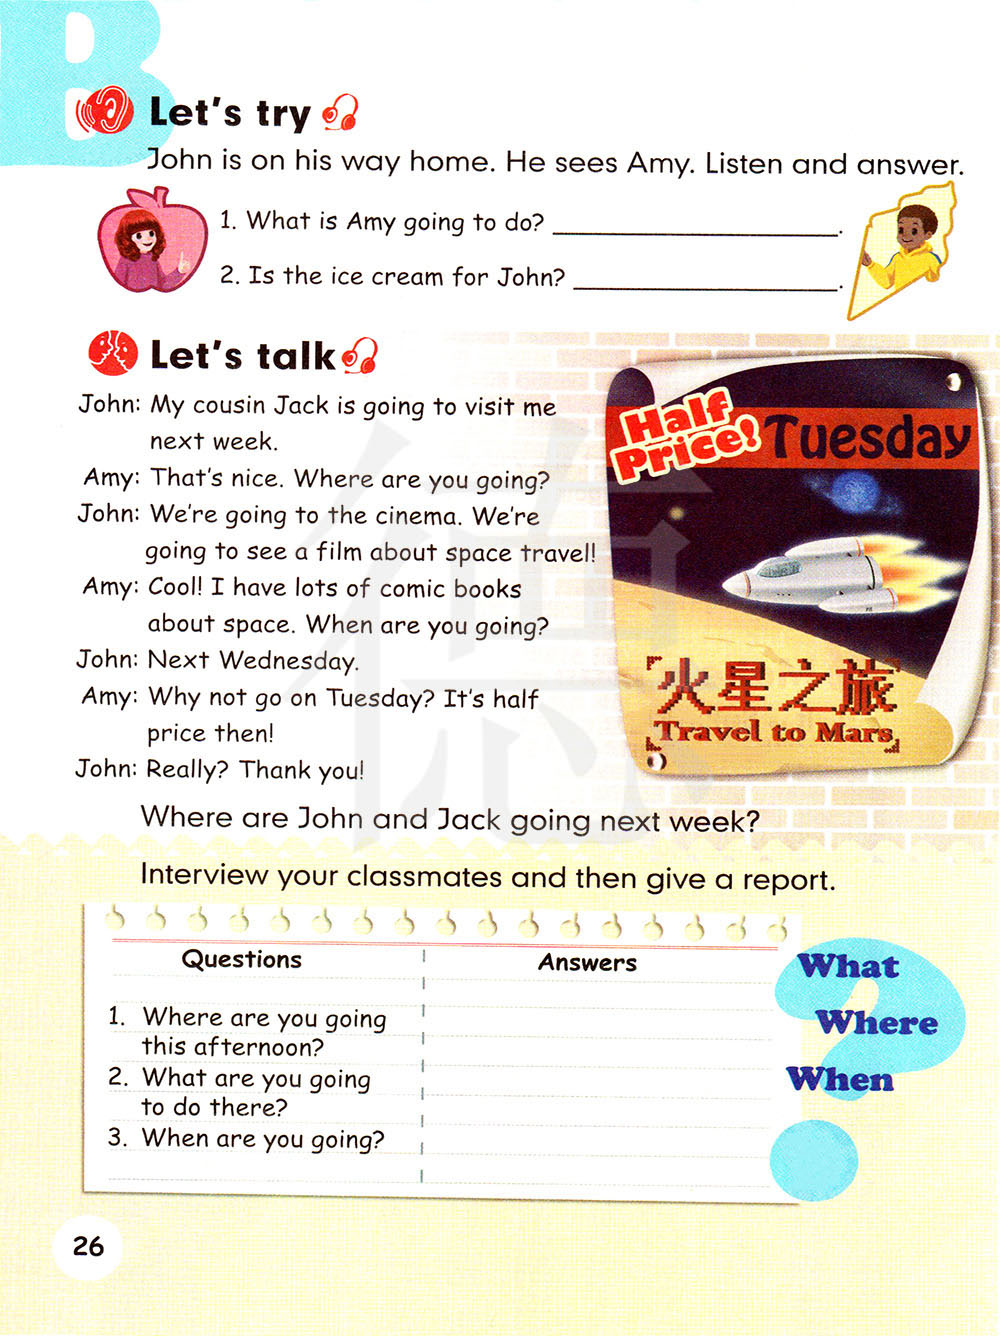 B
Let's try
John is on his way home. He sees Amy. Listen and answer.
1. What is Amy going to do? ____________.
2. Is the ice cream for John? ____________.
Let's talk
John: My cousin Jack is going to visit me
next week.
Amy: That's nice. Where are you going?
John: We're going to the cinema. We're
going to see a film about space travel!
Amy: Cool! I have lots of comic books
about space. When are you going?
John: Next Wednesday.
Amy: Why not go on Tuesday? It's half
price then!
John: Really? Thank you!
Half
Price!
Tuesday
火星之旅
Travel to Mars
Where are John and Jack going next week?
Interview your classmates and then give a report.
Questions Answers
1. Where are you going
this afternoon?
2. What are you going
to do there?
3. When are you going?
What
Where
When
?
26